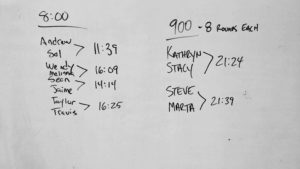 8:00
Andrew
Sal > 11:39
Wendy
Melinda > 16:09
Sean
Jaime > 14:14
Taylor
Travis > 16:25
900 - 8 ROUNDS EACH
KATHRYN
STACY > 21:24
STEVE
MARTA > 21:39